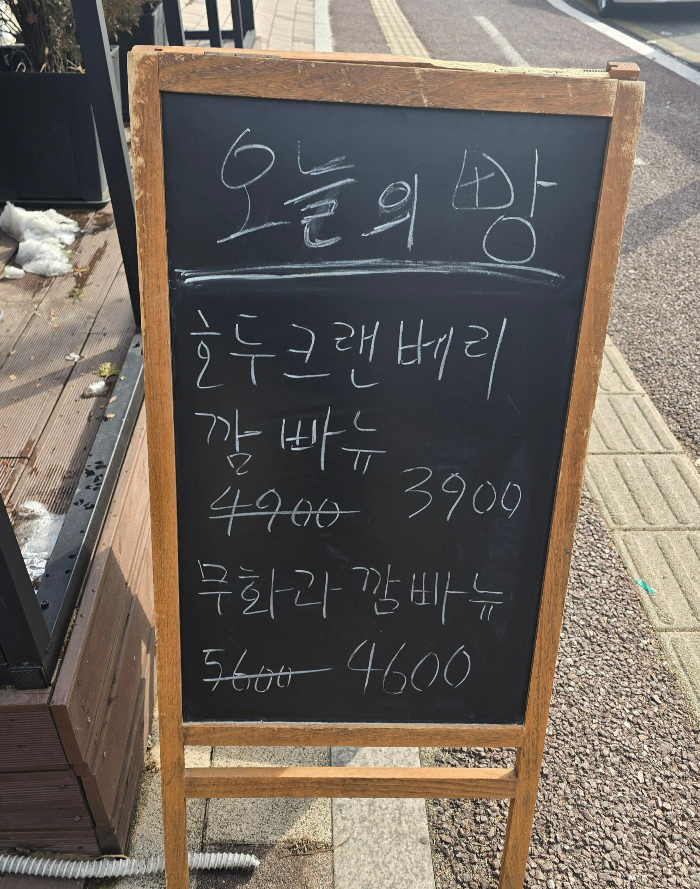 오늘의 빵
호두크랜베리
깜빠뉴
4900 3900
무화과깜빠뉴
5600 4600